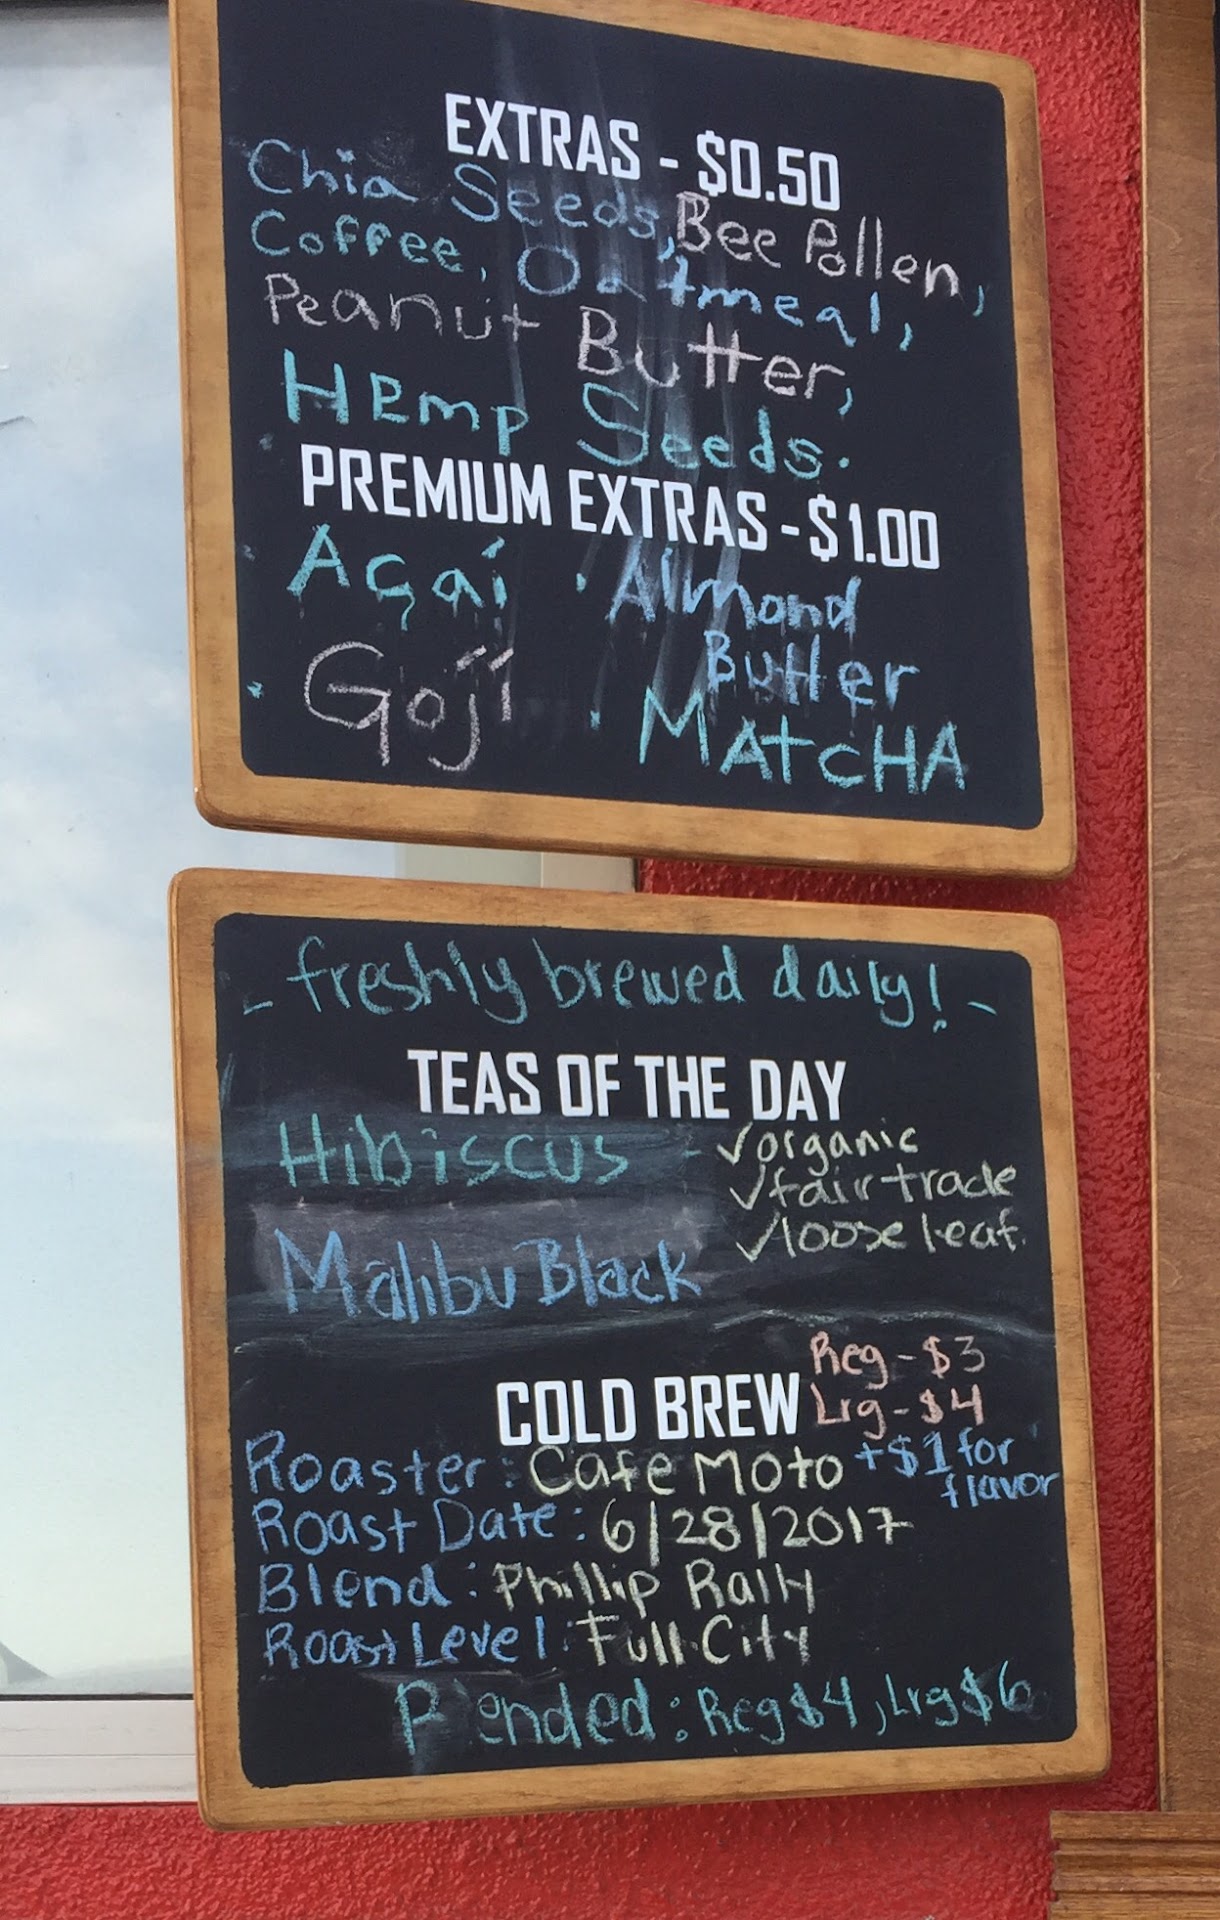 EXTRAS - $0.50
Chia Seeds, Bee Pollen,
Coffee, Oatmeal,
Peanut Butter,
Hemp Seeds.
PREMIUM EXTRAS - $1.00
· Açaí · Almond
Butter
· Gojí · MAtcHA
- freshly brewed daily! -
TEAS OF THE DAY
Hibiscus - √organic
√fair trade
√loose leaf.
Malibu Black
Reg - $3
COLD BREW Lrg - $4
Roaster: Cafe Moto +$1 for
flavor
Roast Date: 6/28/2017
Blend: Phillip Rally
Roast Level: Full City
Blended: Reg $4, Lrg $6